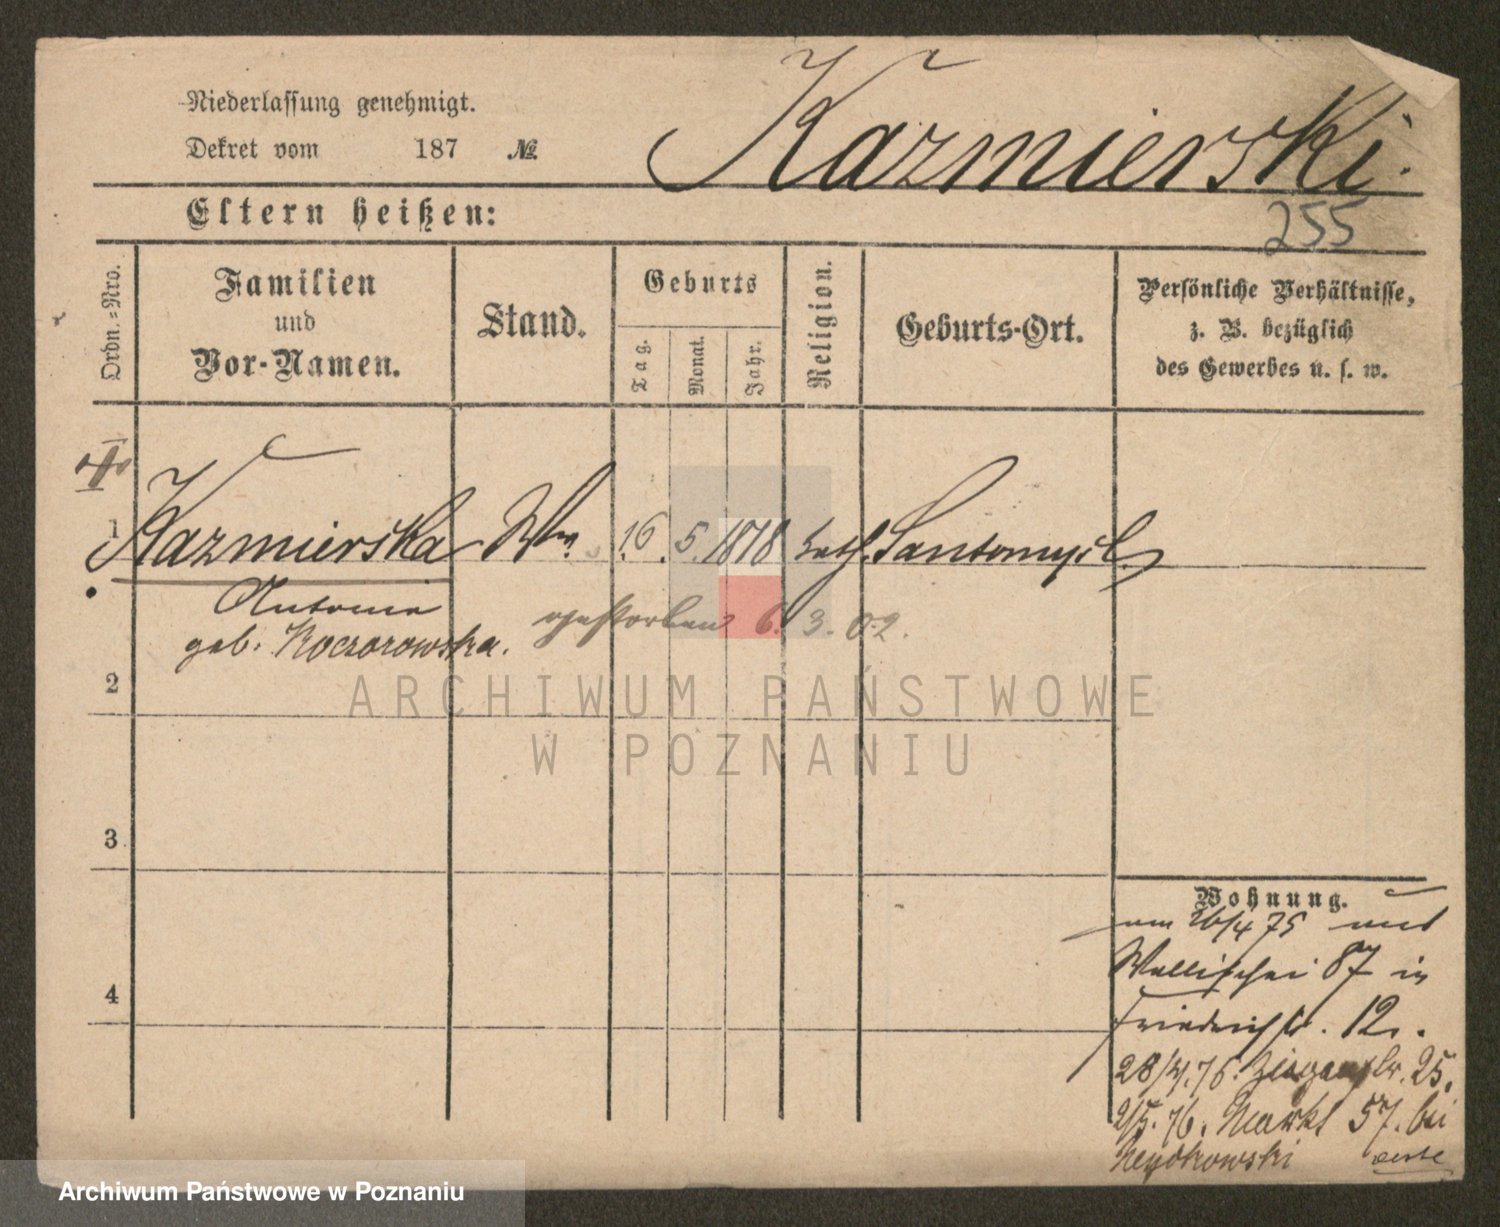 Niederlassung genehmigt.
Dekret vom 187 №
Kazmierski.
Eltern heißen:
255
Ordn.=Nro.
Familien
und
Vor-Namen.
Stand.
Geburts
Tag.
Monat.
Jahr.
Religion.
Geburts-Ort.
Persönliche Verhältnisse,
z. B. bezüglich
des Gewerbes u. s. w.
1 Kazmierska Ww. 16. 5. 1818 kath. Santomysl.
Antonie
geb. Koczorowska.
gestorben 6. 3. 02.
2
3
4
ARCHIWUM PAŃSTWOWE
W POZNANIU
Wohnung.
am 26/4 75 aus
Wallischei 87 in
Friedrichstr. 12.
28/4. 76. 25.
2/5. 76. Markt 57. bei
Archiwum Państwowe w Poznaniu